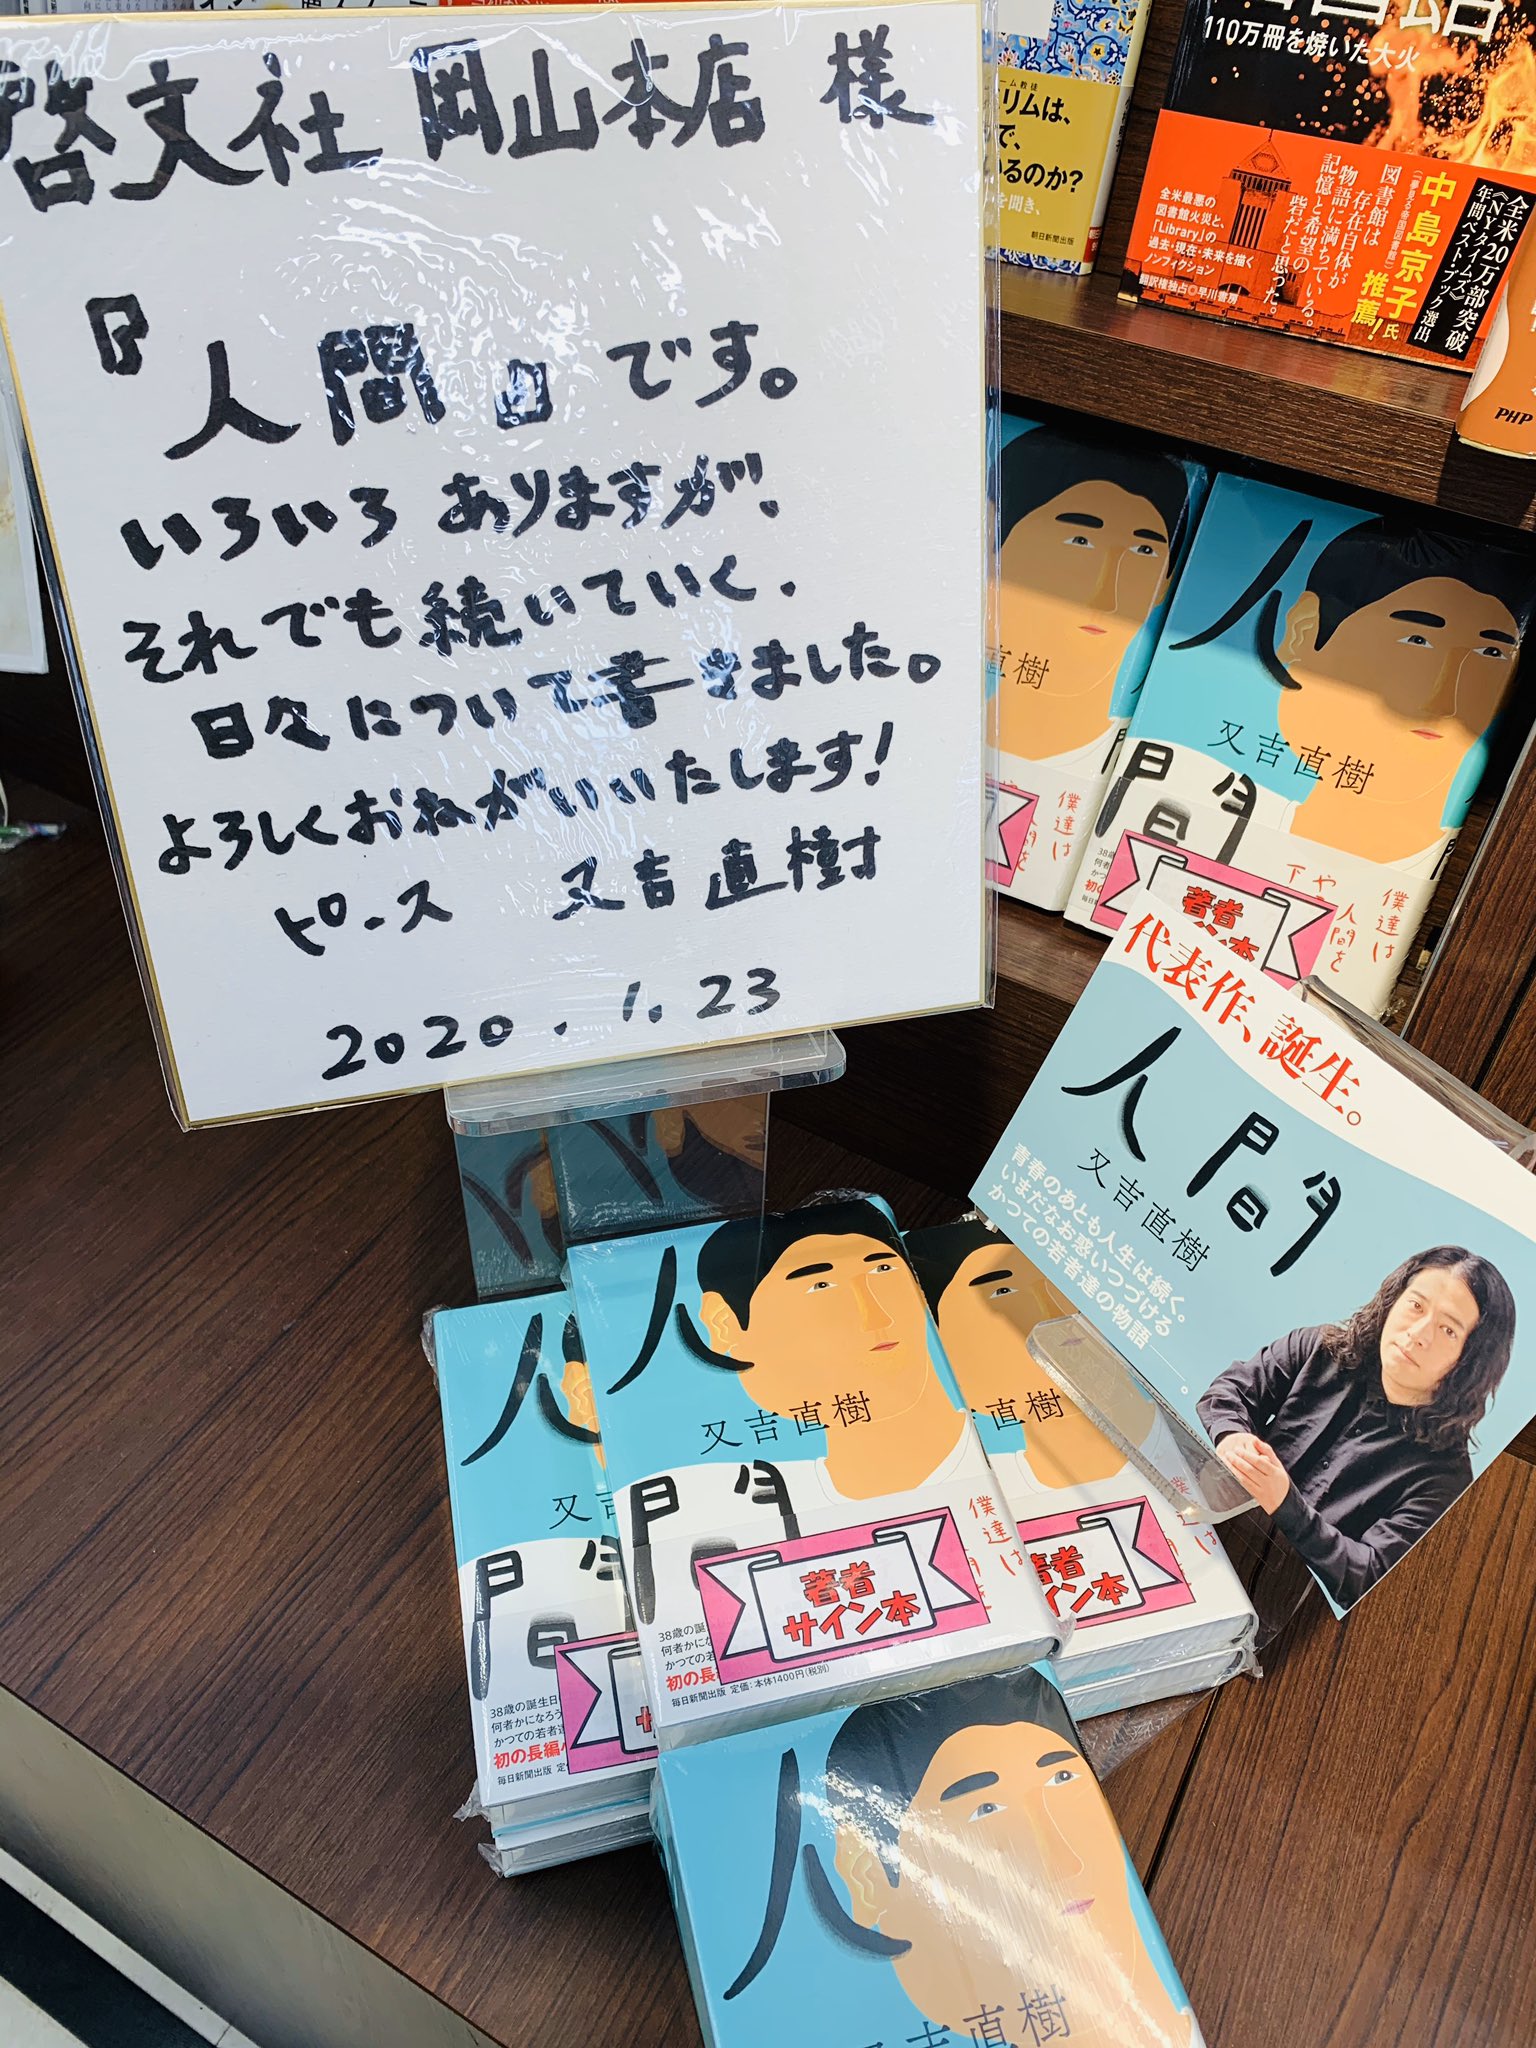 啓文社 岡山本店 様
『人間』です。
いろいろありますが、
それでも続いていく、
日々について書きました。
よろしくおねがいいたします!
ピース 又吉直樹
2020.1.23
リムは、
で、
いるのか?
を聞き、
朝日新聞出版
110万冊を焼いた大火
全米20万部突破
《NYタイムズ》
年間ベスト・ブック選出
中島京子氏
推薦!
図書館は
存在自体が
物語に満ちている。
記憶と希望の
砦だと思った。
全米最悪の
図書館火災と、
「Library」の
過去・現在・未来を描く
ノンフィクション
翻訳権独占◎早川書房
PHP
直樹
人間
又吉直樹
僕達は
人間を
著者
サイン本
代表作、誕生。
人間
又吉直樹
青春のあとも人生は続く。
いまだなお惑いつづける
かつての若者達の物語――。
人間
又吉直樹
僕達は
著者
サイン本
38歳の誕
何者かにな
かつての若
初の長
毎日新聞出版 定価:本体1400円(税別)
直樹
著者
サイン本
人間
又吉
38歳の誕生日
何者かになろう
かつての若者達
初の長編
毎日新聞出版
人
又吉直樹